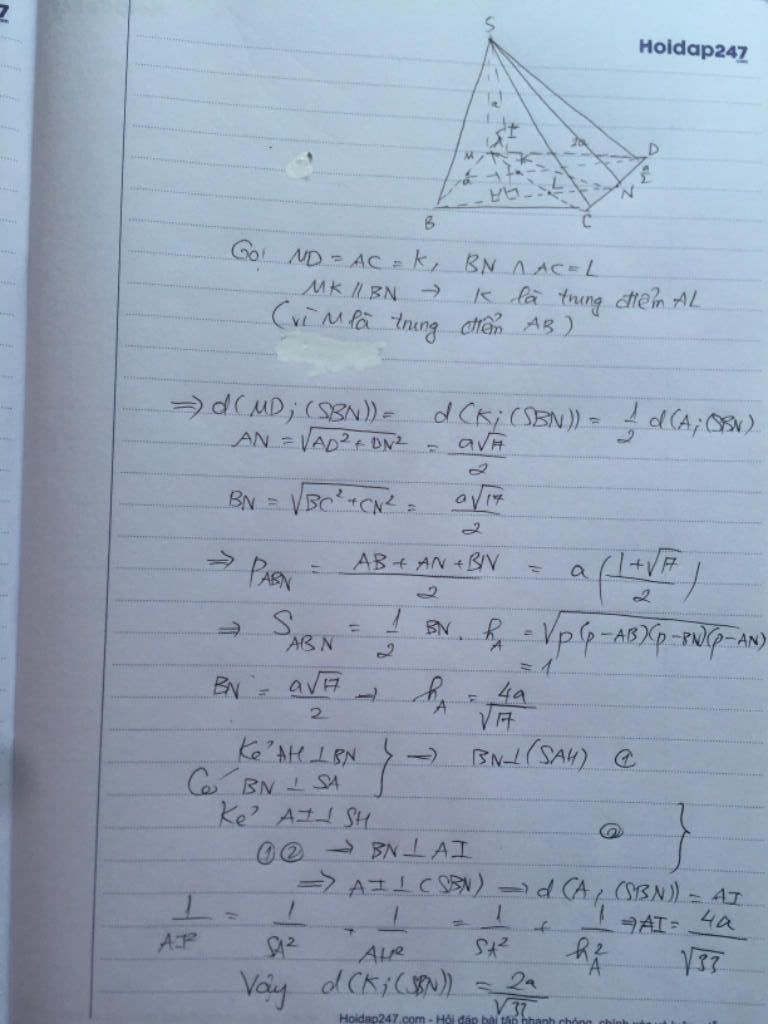 7
Hoidap247
.com
S
a
I
2a
M
K
D
a/2
N
a/2
L
H
B
C
Gọi MD ∩ AC = K, BN ∩ AC = L
MK // BN → K là trung điểm AL
(vì M là trung điểm AB)
⇒ d(MD; (SBN)) = d(K; (SBN)) = 1/2 d(A; (SBN)
AN = √(AD² + DN²) = a√17/2
BN = √(BC² + CN²) = a√17/2
⇒ P_ABN = (AB + AN + BN)/2 = a((1+√17)/2)
⇒ S_ABN = 1/2 BN. h_A = √(p(p-AB)(p-BN)(p-AN))
= 1
BN = a√17/2 → h_A = 4a/√17
Kẻ AH ⊥ BN } → BN ⊥ (SAH) ①
Có BN ⊥ SA
Kẻ AI ⊥ SH ② }
①② → BN ⊥ AI
⇒ AI ⊥ (SBN) ⇒ d(A, (SBN)) = AI
1/AI² = 1/SA² + 1/AH² = 1/SA² + 1/h_A² ⇒ AI = 4a/√33
Vậy d(K; (SBN)) = 2a/√33
Hoidap247.com - Hỏi đáp bài tập nhanh chóng, chính xác